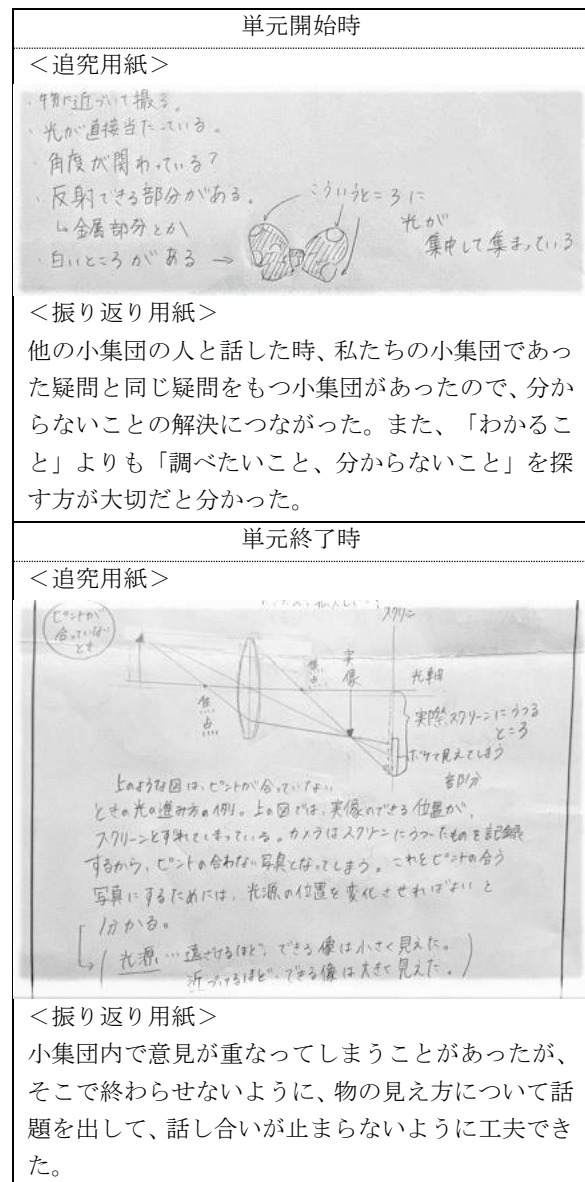 単元開始時
＜追究用紙＞
・物に近づいて撮る。
・光が直接当たっている。
・角度が関わっている？
・反射できる部分がある。
↳金属部分とか
・白いところがある →
こういうところに
光が
集中して集まっている
＜振り返り用紙＞
他の小集団の人と話した時、私たちの小集団であっ
た疑問と同じ疑問をもつ小集団があったので、分か
らないことの解決につながった。また、「わかるこ
と」よりも「調べたいこと、分からないこと」を探
す方が大切だと分かった。
単元終了時
＜追究用紙＞
ピントが
合っていない
とき
スクリーン
焦点
焦点
実像
光軸
実際スクリーンにうつる
ところ
ボケて見えてしまう
部分
上のような図は、ピントが合っていない
ときの光の進み方の例。上の図では、実像のできる位置が、
スクリーンとずれてしまっている。カメラはスクリーンにうつったものを記録
するから、ピントの合わない写真となってしまう。これをピントの合う
写真にするためには、光源の位置を変化させればよいと
分かる。
光源…遠ざけるほど、できる像は小さく見えた。
近づけるほど、できる像は大きく見えた。
＜振り返り用紙＞
小集団内で意見が重なってしまうことがあったが、
そこで終わらせないように、物の見え方について話
題を出して、話し合いが止まらないように工夫でき
た。